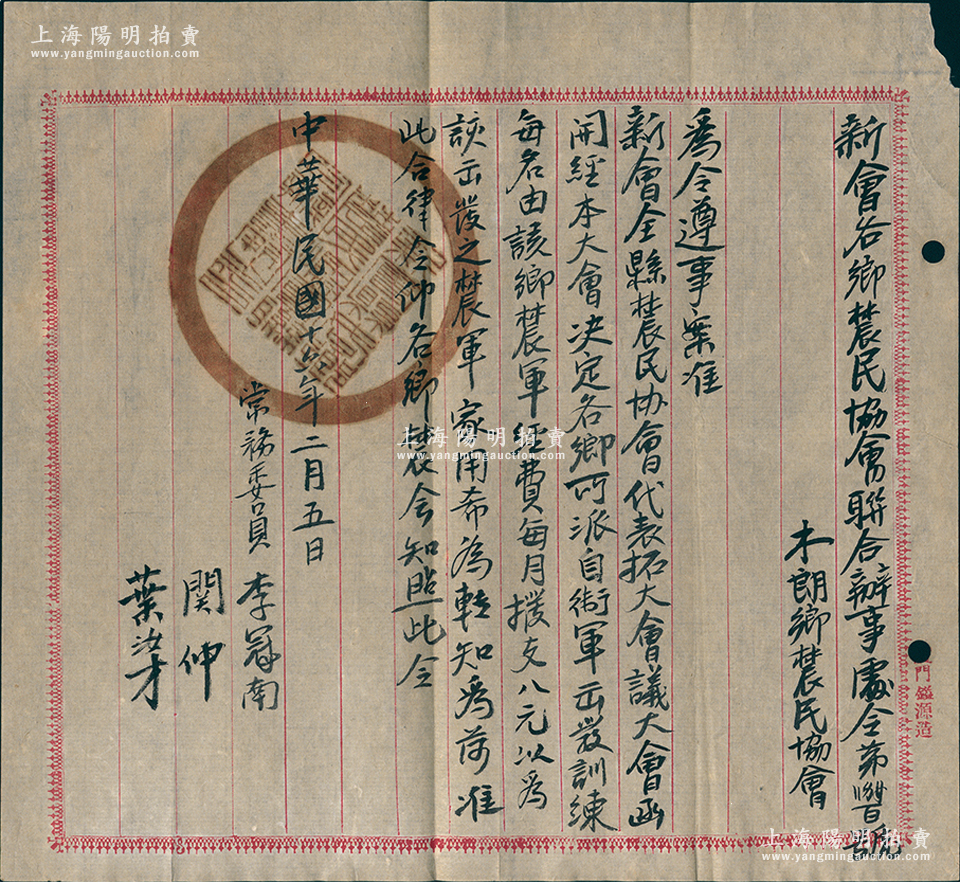 上海陽明拍賣
www.yangmingauction.com
新會各鄉農民協會聯合辦事處令第 百 號
木朗鄉農民協會
為令遵事案准
新會全縣農民协會代表拓大會議大會函
開經本大會决定各鄉所派自衛軍出發訓練
每名由該鄉農軍經費每月撥支八元以為
該出發之農軍家用希為轉知為荷准
此合律令仰各鄉農會知照此令
中華民國十六年二月五日
常務委員 李冠南
関仲
葉 才
門鎰源造
上海陽明拍賣
www.yangmingauction.com
上海陽明拍賣
www.yangmingauction.com